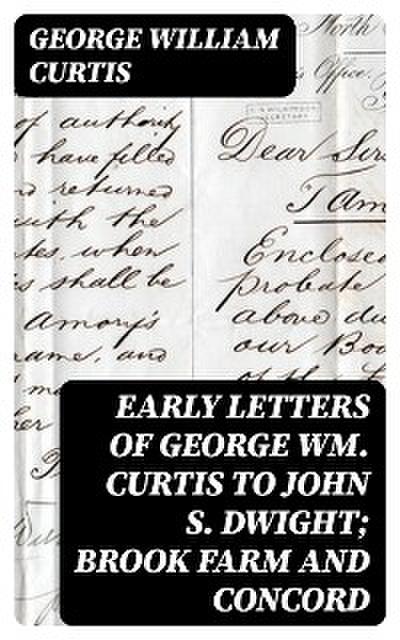 GEORGE WILLIAM
CURTIS
North
s Office.
of authority
have filled
nd returned
with the
tes, when
is shall be
Amory's
name, and
her
Dear Sir
I Am
Enclosed
probate
above du
our Boo
of the
EARLY LETTERS
OF GEORGE WM.
CURTIS TO JOHN
S. DWIGHT;
BROOK FARM AND
CONCORD